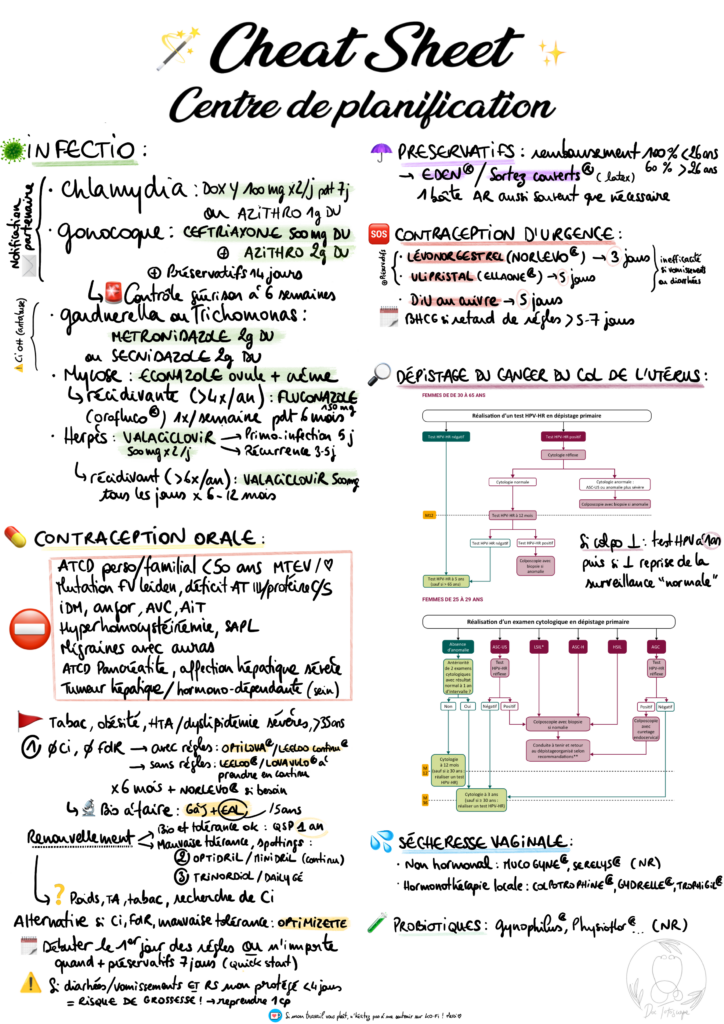 Cheat Sheet
Centre de planification
INFECTIO :
Notification partenaire
• Chlamydia : DOXY 100 mg x2/j pdt 7j
ou AZITHRO 1g DU
• gonocoque : CEFTRIAXONE 500 mg DU
⊕ AZITHRO 2g DU
⊕ Préservatifs 14 jours
↳ Contrôle guérison à 6 semaines
• gardnerella ou Trichomonas :
METRONIDAZOLE 2g DU
ou SECNIDAZOLE 2g DU
Ci OH (antabuse)
• Mycose : ECONAZOLE ovule + crème
↳ récidivante (>4x/an) : FLUCONAZOLE
150 mg
(orofluco®) 1x/semaine pdt 6 mois
• Herpès : VALACICLOVIR → Primo-infection 5j
500 mg x2/j → Récurrence 3-5j
↳ récidivant (>6x/an) : VALACICLOVIR 500mg
tous les jours x 6-12 mois
CONTRACEPTION ORALE :
ATCD perso/familial <50 ans MTEV/♡
Mutation FV leiden, déficit AT III/protéine C/S
IDM, angor, AVC, AiT
Hyperhomocystéinémie, SAPL
Migraines avec auras
ATCD Pancréatite, affection hépatique sévère
Tumeur hépatique/hormono-dépendante (sein)
Tabac, obésité, HTA/dyslipidémie sévères, >35ans
① ∅Ci, ∅ FdR → avec règles : OPTILOVA®/LEELOO continu®
→ sans règles : LEELOO®/LOVAVULO® à
prendre en continu
x 6 mois + NORLEVO® si besoin
↳ Bio à faire : GàJ + EAL, /5ans
Renouvellement → Bio et tolérance ok : QSP 1 an
→ Mauvaise tolérance, spottings :
② OPTIDRIL/MINIDRIL (continu)
③ TRINORDIOL/DAILYGÉ
↳ ? Poids, TA, tabac, recherche de Ci
Alternative si Ci, FdR, mauvaise tolérance : OPTIMIZETTE
Débuter le 1er jour des règles OU n'importe
quand + préservatifs 7 jours (quick start)
Si diarrhées/vomissements ET RS non protégé <4 jours
= RISQUE DE GROSSESSE ! → reprendre 1 cp
PRESERVATIFS : remboursement 100% <26 ans
60% >26 ans
→ EDEN®/Sortez couverts® (latex)
1 boîte AR aussi souvent que nécessaire
SOS CONTRACEPTION D'URGENCE :
• LÉVONORGESTREL (NORLEVO®) → 3 jours
• ULIPRISTAL (ELLAONE®) → 5 jours
inefficacité
si vomissements
ou diarrhées
• DiU au cuivre → 5 jours
BHCG si retard de règles > 5-7 jours
DÉPISTAGE DU CANCER DU COL DE L'UTÉRUS :
FEMMES DE DE 30 À 65 ANS
Réalisation d'un test HPV-HR en dépistage primaire
Test HPV-HR négatif
Test HPV-HR positif
Cytologie réflexe
Cytologie normale
Cytologie anormale :
ASC-US ou anomalie plus sévère
Colposcopie avec biopsie si anomalie
M12
Test HPV-HR à 12 mois
Test HPV-HR négatif
Test HPV-HR positif
Colposcopie avec
biopsie si
anomalie
Test HPV-HR à 5 ans
(sauf si > 65 ans)
Si colpo ⊥ : test HPV à 1 an
puis si ⊥ reprise de la
surveillance "normale"
FEMMES DE 25 À 29 ANS
Réalisation d'un examen cytologique en dépistage primaire
Absence
d'anomalie
ASC-US
LSIL*
ASC-H
HSIL
AGC
Antériorité
de 2 examens
cytologiques
avec résultat
normal à 1 an
d'intervalle ?
Test
HPV-HR
réflexe
Test
HPV-HR
réflexe
Non
Oui
Négatif
Positif
Positif
Négatif
Colposcopie avec biopsie si
anomalie
Colposcopie
avec
curetage
endocervical
Conduite à tenir et retour
au dépistage organisé selon
recommandations**
Cytologie
à 12 mois
(sauf si ≥ 30 ans :
réaliser un test
HPV-HR)
Cytologie à 3 ans
(sauf si ≥ 30 ans :
réaliser un test HPV-HR)
SÉCHERESSE VAGINALE :
• Non hormonal : MUCOGYNE®, SERELYS® (NR)
• Hormonothérapie locale : COLPOTROPHINE®, GYDRELLE®, TROPHIGIL®
PROBIOTIQUES : gynophilus®, Physioflor®... (NR)
Si mon travail vous plaît, n'hésitez pas à me soutenir sur ko-fi ! Merci ♡